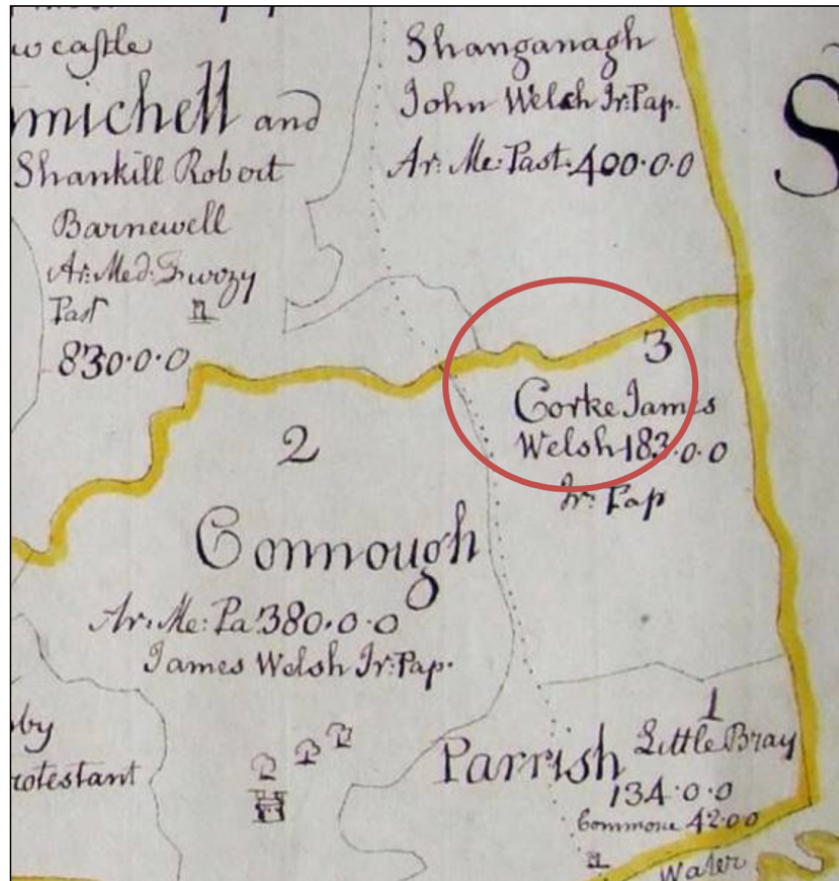 wcastle
michell and
Shankill Robert
Barnewell
Ar: Med: Furzy
Past
830·0·0
Shanganagh
John Welsh Ir: Pap.
Ar: Me: Past. 400·0·0
S
3
Corke James
Welsh 183·0·0
Ir: Pap
2
Connough
Ar: Me: Pa: 380·0·0
James Welsh Ir: Pap.
by
rotestant
Parrish
1
Little Bray
134·0·0
Commone 42·00
Water